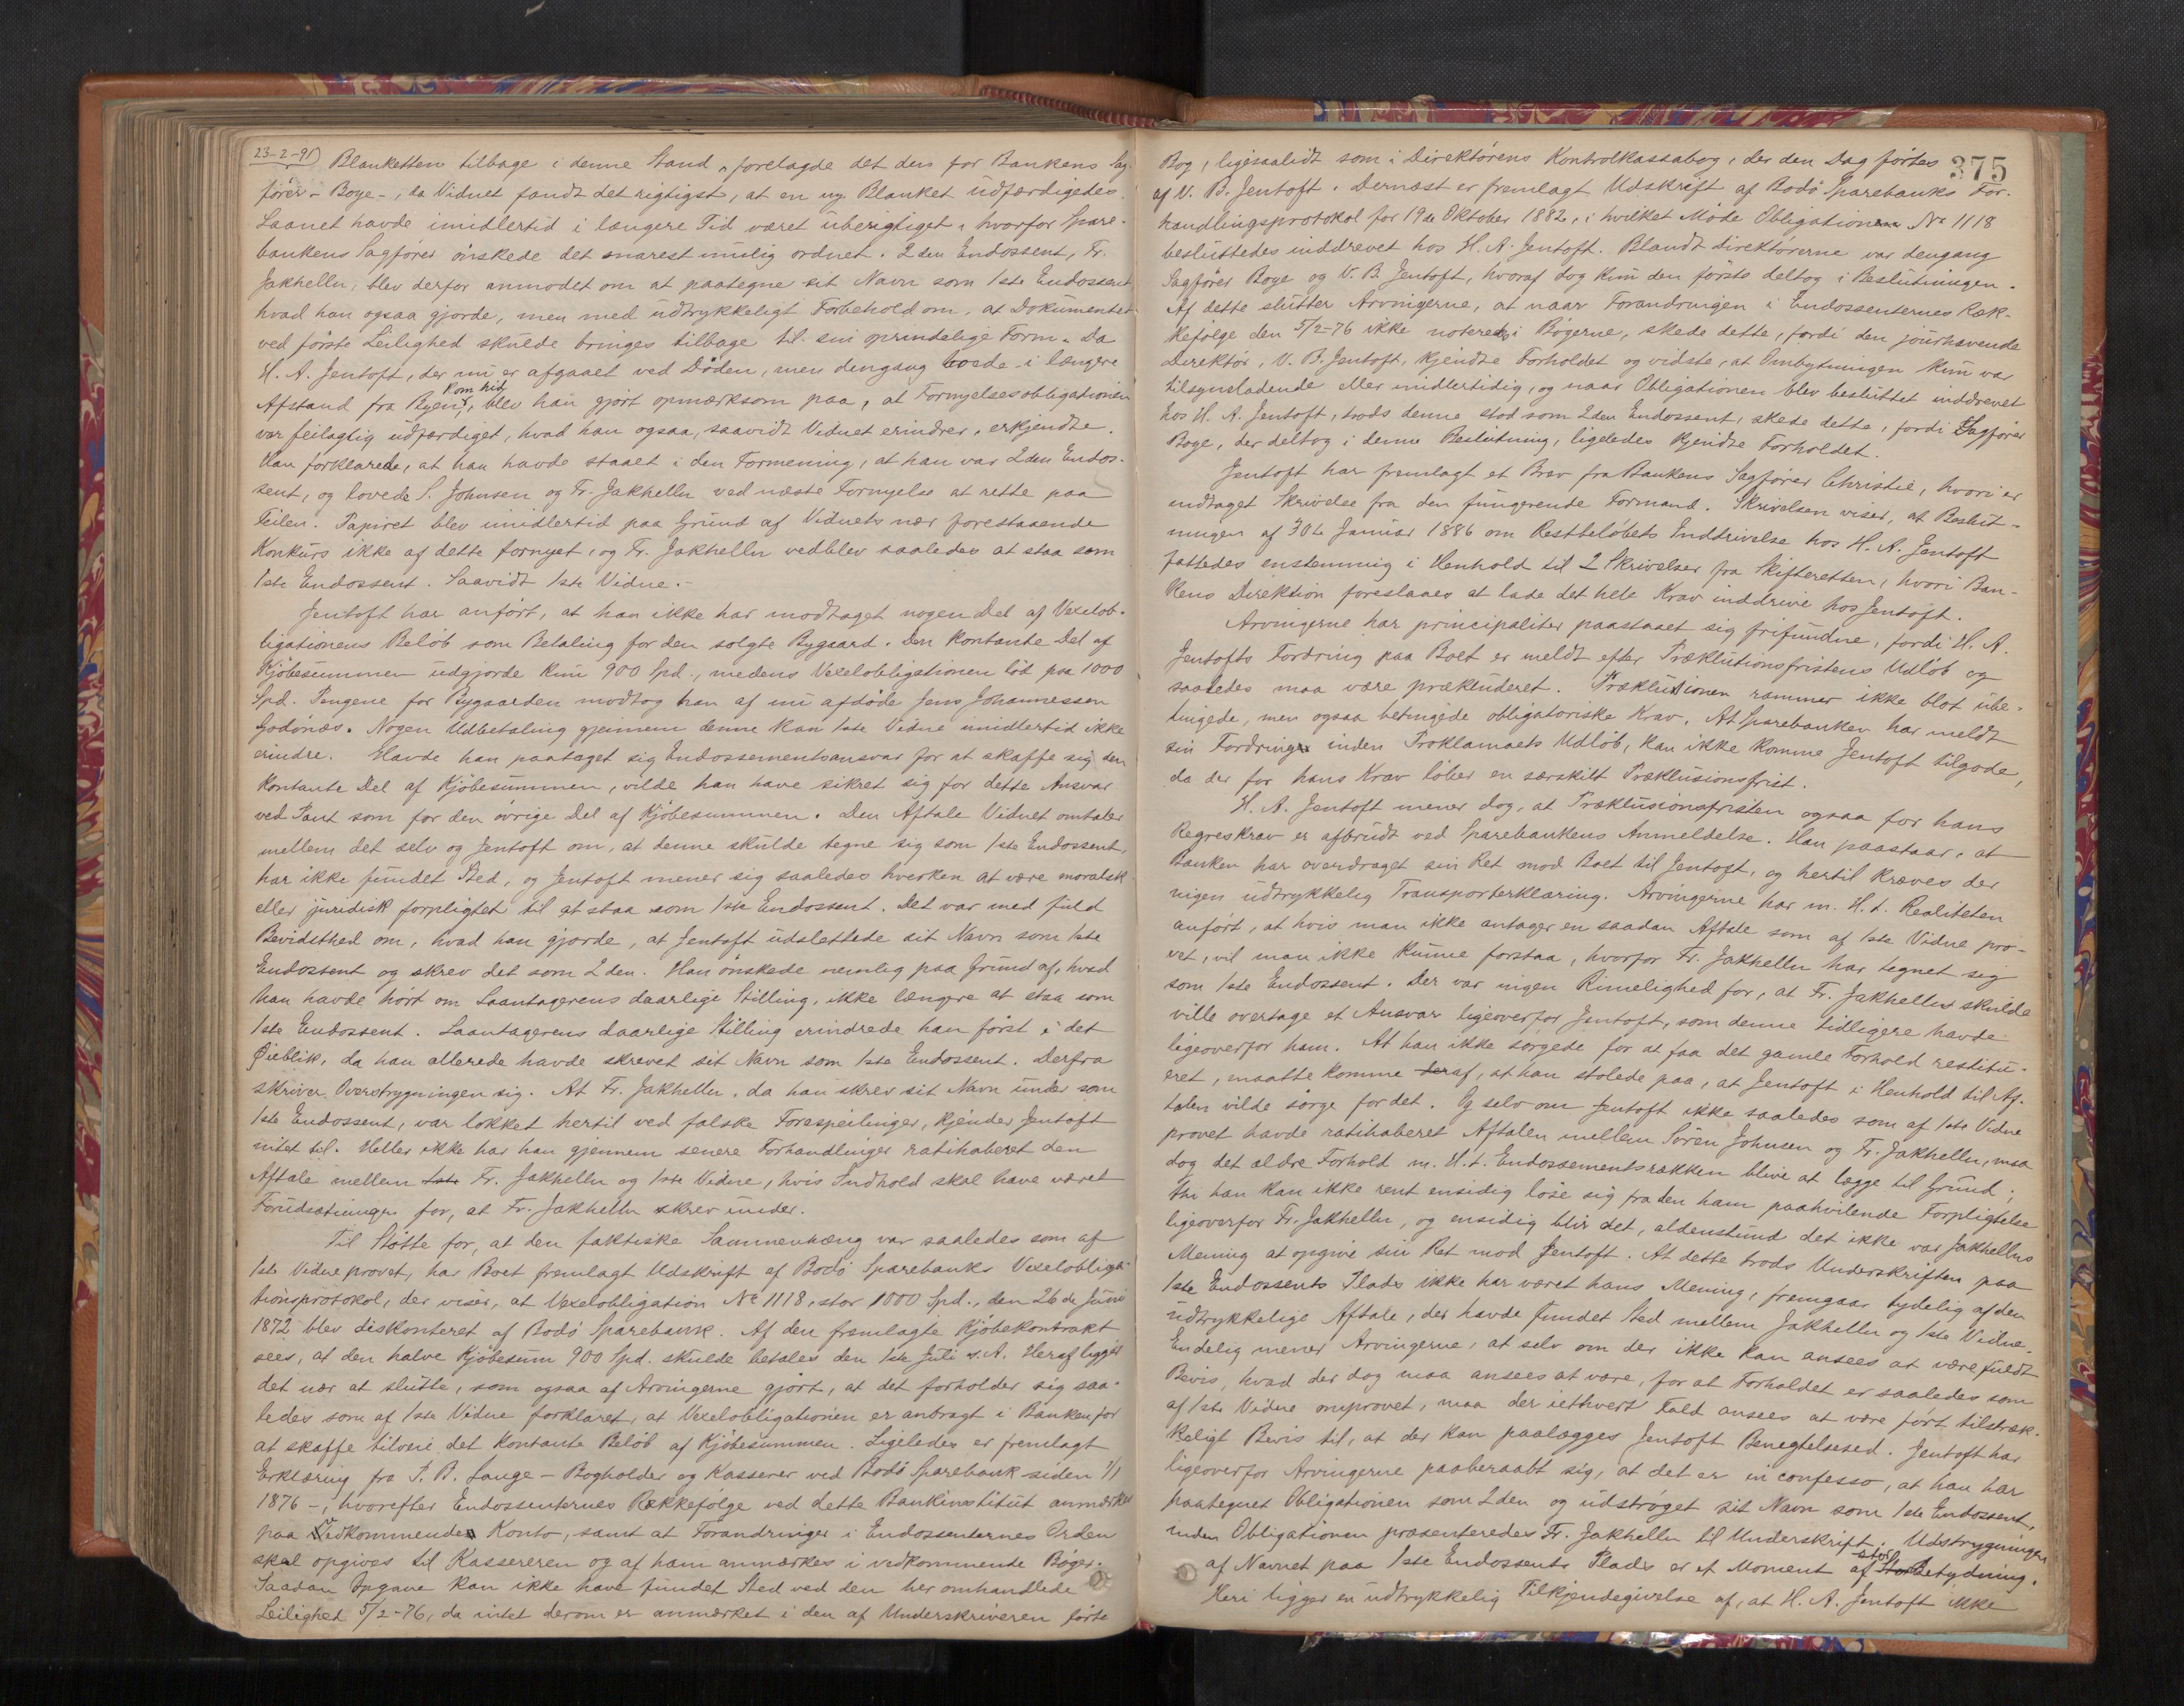 23-2-91) Blanketten tilbage i denne Stand, forelagde det den for Bankens Sag-
fører - Boye -, da Vidnet fandt det rigtigst, at en ny Blanket udfærdigedes.
Laanet havde imidlertid i længere Tid været uberigtiget, hvorfor Spare-
bankens Sagfører ønskede det snarest mulig ordnet. 2den Endossent, Fr.
Jakhelln, blev derfor anmodet om at paategne sit Navn som 1ste Endossent
hvad han ogsaa gjorde, men med udtrykkeligt Forbehold om, at Dokumentet
ved første Leilighed skulde bringes tilbage til sin oprindelige Form. Da
H. A. Jentoft, der nu er afgaaet ved Døden, men dengang boede i længere
Afstand fra Byen, kom hid, blev han gjort opmærksom paa, at Fornyelsesobligationen
var feilagtig udfærdiget, hvad han ogsaa, saavidt Vidnet erindrer, erkjendte.
Han forklarede, at han havde staaet i den Formening, at han var 2den Endos-
sent, og lovede S. Johnsen og Fr. Jakhelln ved næste Fornyelse at rette paa
Feilen. Papiret blev imidlertid paa Grund af Vidnets nær forestaaende
Konkurs ikke af dette fornyet, og Fr. Jakhelln vedblev saaledes at staa som
1ste Endossent. Saavidt 1ste Vidne.-
Jentoft har anført, at han ikke har modtaget nogen Del af Vexelob-
ligationens Beløb som Betaling for den solgte Bygaard. Den kontante Del af
Kjøbesummen udgjorde kun 900 Spd., medens Vexelobligationen lød paa 1000
Spd. Pengene for Bygaarden modtog han af nu afdøde Jens Johannessen
Godønæs. Nogen Udbetaling gjennem denne kan 1ste Vidne imidlertid ikke
erindre. Havde han paataget sig Endossementsansvar for at skaffe sig den
kontante Del af Kjøbesummen, vilde han have sikret sig for dette Ansvar
ved Pant som for den øvrige Del af Kjøbesummen. Den Aftale Vidnet omtaler
mellem det selv og Jentoft om, at denne skulde tegne sig som 1ste Endossent,
har ikke fundet Sted, og Jentoft mener sig saaledes hverken at være moralsk
eller juridisk forpligtet til at staa som 1ste Endossent. Det var med fuld
Bevidsthed om, hvad han gjorde, at Jentoft udslettede sit Navn som 1ste
Endossent og skrev det som 2den. Han ønskede nemlig paa Grund af, hvad
han havde hørt om Laantagerens daarlige Stilling, ikke længere at staa som
1ste Endossent. Laantagerens daarlige Stilling erindrede han først i det
Øieblik, da han allerede havde skrevet sit Navn som 1ste Endossent. Derfra
skriver Overstrygningen sig. At Fr. Jakhelln, da han skrev sit Navn under som
1ste Endossent, var lokket hertil ved falske Forespeilinger, kjender Jentoft
intet til. Heller ikke har han gjennem senere Forhandlinger ratihaberet den
Aftale mellem 1ste Fr. Jakhelln og 1ste Vidne, hvis Indhold skal have været
Forudsætningen for, at Fr. Jakhelln skrev under.
Til Støtte for, at den faktiske Sammenhæng var saaledes som af
1ste Vidne provet, har Boet fremlagt Udskrift af Bodø Sparebanks Vexelobliga-
tionsprotokol, der viser, at Vexelobligation No 1118, stor 1000 Spd., den 26de Juni
1872 blev diskonteret af Bodø Sparebank. Af den fremlagte Kjøbekontrakt
sees, at den halve Kjøbesum 900 Spd. skulde betales den 1ste Juli s. A. Heraf ligger
det nær at slutte, som ogsaa af Arvingerne gjort, at det forholder sig saa-
ledes som af 1ste Vidne forklaret, at Vexelobligationen er anbragt i Banken for
at skaffe tilveie det kontante Beløb af Kjøbesummen. Ligeledes er fremlagt
Erklæring fra P. B. Lange - Bogholder og Kasserer ved Bodø Sparebank siden 1/1
1876 -, hvorefter Endossenternes Rækkefølge ved dette Bankinstitut anmærkes
paa Vedkommendes Konto, samt at Forandringer i Endossenternes Orden
skal opgives til Kassereren og af ham anmærkes i vedkommende Bøger.
Saadan Opgave kan ikke have fundet Sted ved den her omhandlede
Leilighed 5/2-76, da intet derom er anmærket i den af Underskriveren førte
375
Bog, ligesaalidt som i Direktørens Kontrolkassabog, der den Dag førtes
af V. B. Jentoft. Dernæst er fremlagt Udskrift af Bodø Sparebanks For-
handlingsprotokol for 19de Oktober 1882, i hvilket Møde Obligationen No 1118
besluttedes inddrevet hos H. A. Jentoft. Blandt Direktørerne var dengang
Sagfører Boye og V. B. Jentoft, hvoraf dog kun den første deltog i Beslutningen.
Af dette slutter Arvingerne, at naar Forandringen i Endossenternes Ræk-
kefølge den 5/2-76 ikke noteredes i Bøgerne, skede dette, fordi den jourhavende
Direktør, V. B. Jentoft, kjendte Forholdet og vidste, at Ombytningen kun var
tilsyneladende eller midlertidig, og naar Obligationen blev besluttet inddrevet
hos H. A. Jentoft, trods denne stod som 2den Endossent, skede dette, fordi Sagfører
Boye, der deltog i denne Beslutning, ligeledes kjendte Forholdet.
Jentoft har fremlagt et Brev fra Bankens Sagfører Christie, hvori er
indtaget Skrivelse fra den fungerende Formand. Skrivelsen viser, at Beslut-
ningen af 30te Januar 1886 om Restbeløbets Inddrivelse hos H. A. Jentoft
fattedes enstemmig i Henhold til 2 Skrivelser fra Skifteretten, hvori Ban-
kens Direktion foreslaaes at lade det hele Krav inddrive hos Jentoft.
Arvingerne har principaliter paastaaet sig frifundne, fordi H. A.
Jentofts Fordring paa Boet er meldt efter Præklusionsfristens Udløb og
saaledes maa være prækluderet. Præklusionen rammer ikke blot ube-
tingede, men ogsaa betingede obligatoriske Krav. At Sparebanken har meldt
sin Fordring inden Proklamaets Udløb, kan ikke komme Jentoft tilgode,
da der for hans Krav løber en særskilt Præklusionsfrist.
H. A. Jentoft mener dog, at Præklusionsfristen ogsaa for hans
Regreskrav er afbrudt ved Sparebankens Anmeldelse. Han paastaar, at
Banken har overdraget sin Ret mod Boet til Jentoft, og hertil kræves der
ingen udtrykkelig Transporterklæring. Arvingerne har m. H. t. Realiteten
anført, at hvis man ikke antager en saadan Aftale som af 1ste Vidne pro-
vet, vil man ikke kunne forstaa, hvorfor Fr. Jakhelln har tegnet sig
som 1ste Endossent. Der var ingen Rimelighed for, at Fr. Jakhelln skulde
ville overtage et Ansvar ligeoverfor Jentoft, som denne tidligere havde
ligeoverfor ham. At han ikke sørgede for at faa det gamle Forhold restitu-
eret, maatte komme deraf, at han stolede paa, at Jentoft i Henhold til Af-
talen vilde sørge for det. Og selv om Jentoft ikke saaledes som af 1ste Vidne
provet havde ratihaberet Aftalen mellem Søren Johnsen og Fr. Jakhelln, maa
dog det ældre Forhold m. H. t. Endossementsrækken blive at lægge til Grund;
thi han kan ikke rent ensidig løse sig fra den ham paahvilende Forpligtelse
ligeoverfor Fr. Jakhelln, og ensidig blir det, aldenstund det ikke var Jakhellns
Mening at opgive sin Ret mod Jentoft. At dette trods Underskriften paa
1ste Endossents Plads ikke har været hans Mening, fremgaar tydelig af den
udtrykkelige Aftale, der havde fundet Sted mellem Jakhelln og 1ste Vidne.
Endelig mener Arvingerne, at selv om der ikke kan ansees at være fuldt
Bevis, hvad der dog maa ansees at være, for at Forholdet er saaledes som
af 1ste Vidne omprovet, maa der iethvert Fald ansees at være ført tilstræk-
keligt Bevis til, at der kan paalægges Jentoft Benegtelsesed. Jentoft har
ligeoverfor Arvingerne paaberaabt sig, at det er in confesso, at han har
paategnet Obligationen som 2den og udstrøget sit Navn som 1ste Endossent,
inden Obligationen præsenteredes Fr. Jakhelln til Underskrift. Udstrygningen
af Navnet paa 1ste Endossents Plads er et Moment af stor Betydning.
Heri ligger en udtrykkelig Tilkjendegivelse af, at H. A. Jentoft ikke